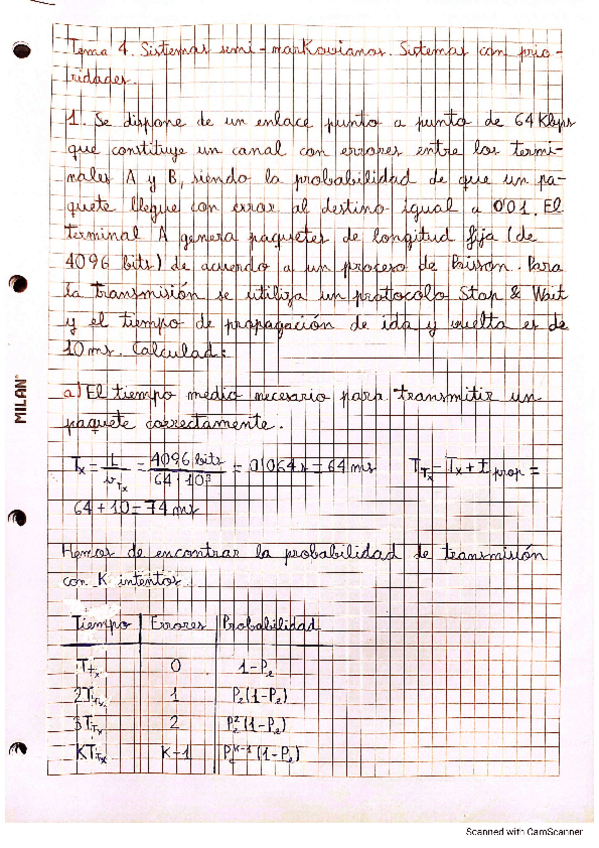 Tema 4. Sistemas semi-markovianos. Sistemas con prio-
ridades.
1. Se dispone de un enlace punto a punto de 64 Kbps
que constituye un canal con errores entre los termi-
nales A y B, siendo la probabilidad de que un pa-
quete llegue con error al destino igual a 0'01. El
terminal A genera paquetes de longitud fija (de
4096 bits) de acuerdo a un proceso de Poisson. Para
la transmisión se utiliza un protocolo Stop & Wait
y el tiempo de propagación de ida y vuelta es de
10 ms. Calculad:
a) El tiempo medio necesario para transmitir un
paquete correctamente.
Tx = L/vTx = 4096 bits/64·10³ = 0'064 s = 64 ms TTx = Tx + tprop =
64 + 10 = 74 ms
Hemos de encontrar la probabilidad de transmisión
con K intentos.
Tiempo Errores Probabilidad
TTx 0 1-Pe
2TTx 1 Pe(1-Pe)
3TTx 2 Pe²(1-Pe)
KTTx K-1 Pe^K-1(1-Pe)
MILAN®
Scanned with CamScanner